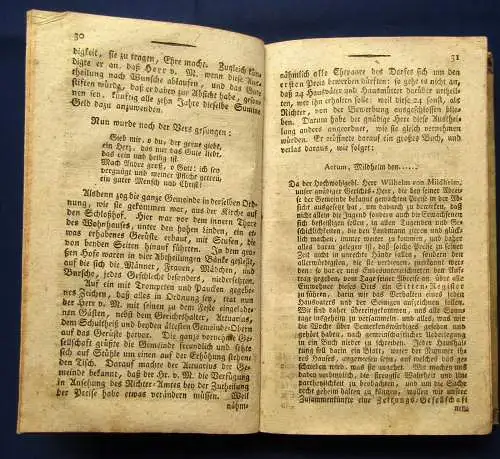 30
digkeit, sie zu tragen, Ehre macht. Zugleich kün-
digte er an, daß Herr v. M. wenn diese Aus-
theilung nach Wunsche ablaufen, und das Gute
stiften würde, daß er dabey zur Absicht habe, geson-
nen sey, künftig alle zehn Jahre dieselbe Summe
Geld dazu anzuwenden.
Nun wurde noch der Vers gesungen:
Gieb mir, o du, der gerne giebt,
ein Herz, das nur das Gute liebt,
das rein und heilig ist.
Mach Andre groß, o Gott: ich sey
vergnügt und meiner Pflicht getreu,
ein guter Mensch und Christ!
Alsdenn zog die ganze Gemeinde in derselben Ord-
nung, wie sie gekommen war, aus der Kirche auf
den Schloßhof. Hier war vor dem innern Thore
des Wohnhauses, unter den hohen Linden, ein et-
was erhabenes Gerüste erbaut, mit Stufen, die
von beyden Seiten hinauf führten. In dem gras-
sen Hofe waren in vier Abtheilungen Bänke gestellt,
auf die sich die Männer, Frauen, Mädchen, und
Bursche, jedes Geschlecht besonders, niedersetzten.
Auf ein mit Trompeten und Paucken gegebe-
nes Zeichen, daß alles in Ordnung sey, trat nun
der Herr v. M. mit seinen zu dem Feste eingelade-
nen Gästen, nebst dem Gerichtshalter, Actuarius,
dem Schultheiß und beyden ältesten Gemeinde-Obern
auf das Gerüste hervor. Die ganze vornehme Ge-
sellschaft grüßte die Gemeinde freundlich und setzte
sich auf Stühle um einen auf der Erhöhung stehen-
den Tisch. Darauf machte der Actuarius der Ge-
meinde bekannt, daß der Hr. v. M. die Verfügung
in Ansehung des Richter-Amtes bey der Zutheilung
der Preise habe etwas verändern müssen. Weil
nähm-
31
nähmlich alle Ehepaare des Dorfes sich um den
ersten Preis bewerben dürften: so gehe es nicht an,
daß 24 Hausväter und Hausmütter darüber urtheilten,
wer ihn erhalten solle: weil diese 24 sonst, als
Richter, von der Bewerbung eingeschlossen blie-
ben. Darum habe der gnädige Herr diese Austhei-
lung anders angeordnet, wie sie gleich vernehmen
würden. Es eröffnete darauf ein großes Buch, und
verlas daraus, wie folget:
Actum, Mildheim den......
Da der Hochwohlgebl. Herr Wilhelm von Mildheim,
unser gnädiger Gerichts-Herr, die bey seiner Abrei-
se der Gemeinde bekannt gemachten Preise in der Ab-
sicht ausgesetzt hat, um dadurch zu bewirken, daß
nicht allein die Jugend sondern auch die Erwachsenen
sich befleißigen sollen, in allen Tugenden und Ge-
schicklichkeiten, die den Landmann zieren und glück-
lich machen, immer weiter zu kommen; und ihm
daher alles daran gelegen ist, daß solche Preise zu sei-
ner Zeit nicht in unrechte Hände fallen, sondern den
allerwürdigsten, so viel als Menschen einsehen und
beurtheilen können, zugetheilt werden mögen: so hat er uns Endesunterzeichneten den Auf-
trag gegeben, vom Tage seiner Abreise an über alle
Einwohner dieses Orts ein Sitten-Register zu
führen, darin wir das Verhalten eines jeden
Hausvaters und der Seinigen aufzeichnen sollen.
Wir sind daher verpflichtet worden, uns alle Sonn-
tage ungefehlt zu versammeln, und alles, was uns
die Woche über Bemerkenswürdiges gesehen und
gehört, nach gemeinschaftlicher Ueberlegung
in ein Buch nieder zu schreiben. Jeder Haushal-
tung soll darin ein Blatt, unter der Nummer ih-
res Hauses, angewiesen seyn, auf welches es ein-
getragen wird, was sie angehet. Wir machen uns
dabey verbindlich, die strengste Wahrheit und Un-
partheylichkeit zu beobachten, und um die Sache
recht geheim halten zu können, wollen wir unsere
Zusammenkünfte eine Zeitungs-Gesellschaft
nen-